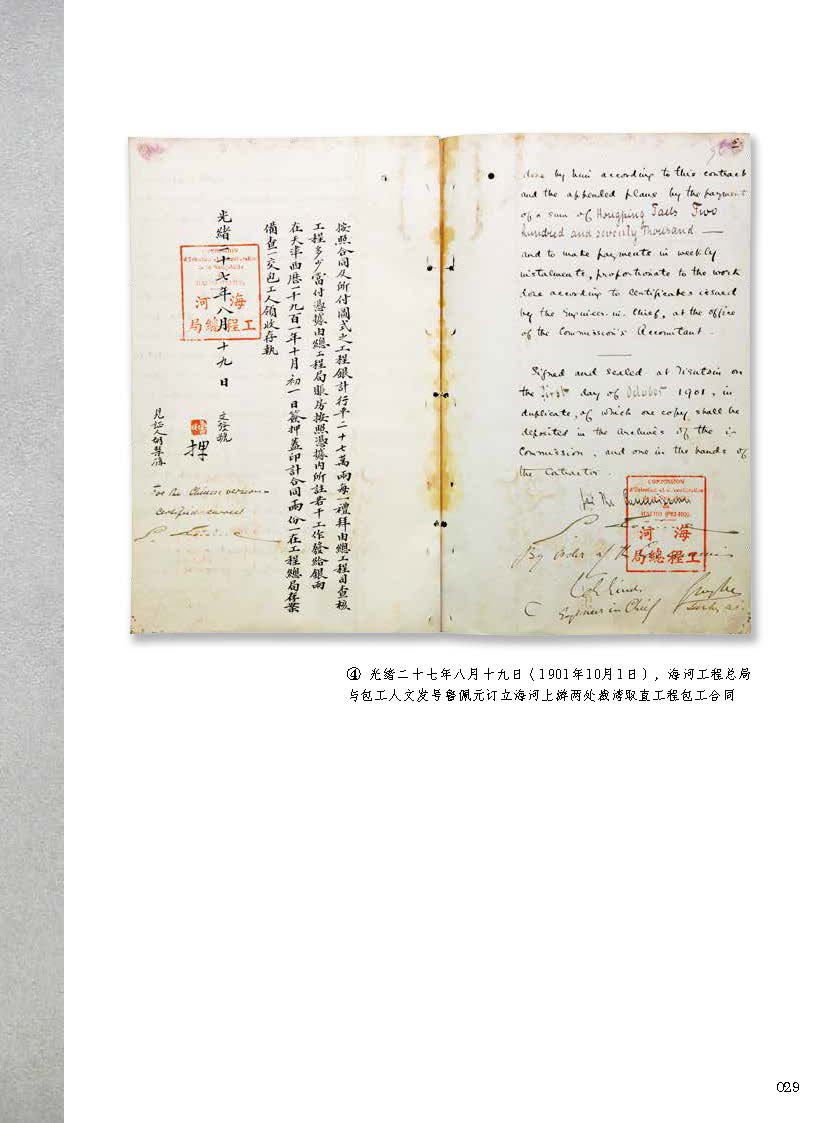 按照合同及所付圖式之工程銀計行平二十七萬兩每一禮拜由總工程司查核
工程多少當付憑據由總工程局賬房按照憑據內所註若干工作發給銀兩
在天津西歷一千九百一年十月初一日簽押蓋印計合同兩份一在工程總局存案
備查一交包工人領收存執
光緒二十七年八月十九日
海河
工程總局
文發號
押
見証人
For the Chinese version
certified correct
done by him according to this contract
and the appended plans by the payment
of a sum of Hongping Taels Two
hundred and seventy Thousand —
and to make payments in weekly
instalments, proportionate to the work
done according to certificates issued
by the Engineer in Chief, at the office
of the Commission's Accountant.
Signed and sealed at Tientsin on
the first day of October 1901, in
duplicate, of which one copy shall be
deposited in the archives of the
Commission, and one in the hands of
the Contractor.
COMMISSION
HAI-HO (PEI-HO)
海河
工程總局
By order of the
Engineer in Chief
④ 光绪二十七年八月十九日（1901年10月1日），海河工程总局
与包工人文发号曾佩元订立海河上游两处裁湾取直工程包工合同
029